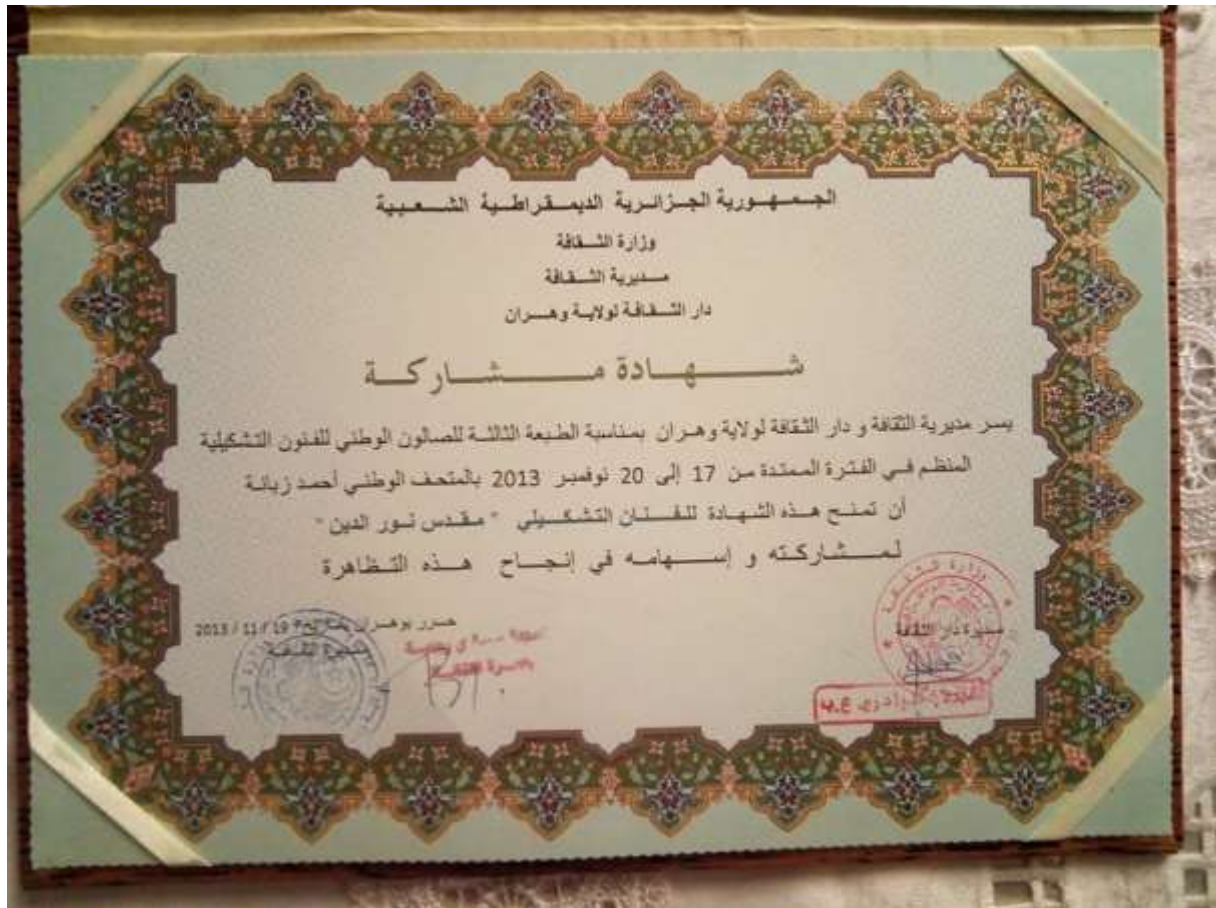 الجمهورية الجزائرية الديمقراطية الشعبية
وزارة الثقافة
مديرية الثقافة
دار الثقافة لولاية وهران
شهادة مشاركة
يسر مديرية الثقافة و دار الثقافة لولاية وهران بمناسبة الطبعة الثالثة للصالون الوطني للفنون التشكيلية
المنظم في الفترة الممتدة من 17 إلى 20 نوفمبر 2013 بالمتحف الوطني أحمد زبانة
أن تمنح هذه الشهادة للفنان التشكيلي " مقدس نور الدين "
لمشاركته و إسهامه في إنجاح هذه التظاهرة
حرر بوهران 19 / 11 / 2013
مديرة الثقافة
وزارة الثقافة
مديرة دار الثقافة